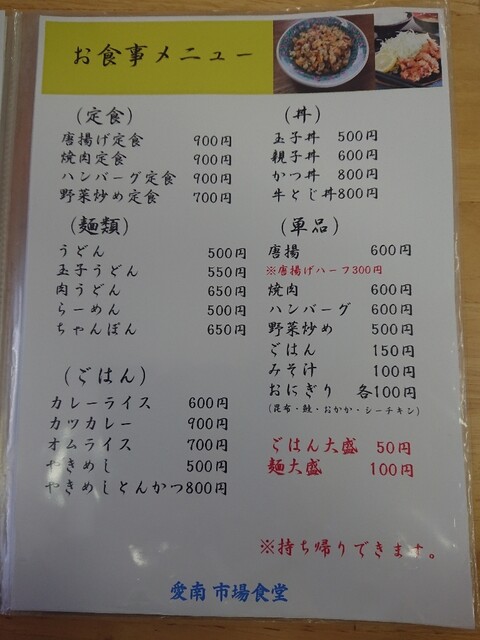 お食事メニュー
(定食)
唐揚げ定食 900円
焼肉定食 900円
ハンバーグ定食 900円
野菜炒め定食 700円
(麺類)
うどん 500円
玉子うどん 550円
肉うどん 650円
らーめん 500円
ちゃんぽん 650円
(ごはん)
カレーライス 600円
カツカレー 900円
オムライス 700円
やきめし 500円
やきめしとんかつ800円
(丼)
玉子丼 500円
親子丼 600円
かつ丼 800円
牛とじ丼800円
(単品)
唐揚 600円
※唐揚げハーフ300円
焼肉 600円
ハンバーグ 600円
野菜炒め 500円
ごはん 150円
みそ汁 100円
おにぎり 各100円
(昆布・鮭・おかか・シーチキン)
ごはん大盛 50円
麺大盛 100円
※持ち帰りできます。
愛南市場食堂